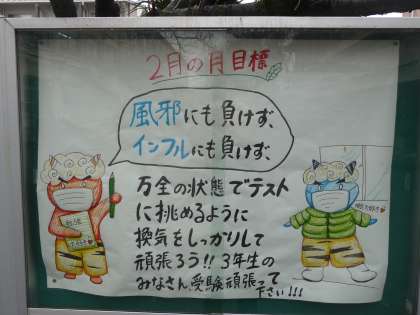 2月の月目標
風邪にも負けず、
インフルにも負けず、
万全の状態でテスト
に挑めるように
換気をしっかりして
頑張ろう!! 3年生の
みなさん受験頑張って
下さい!!!
勉強